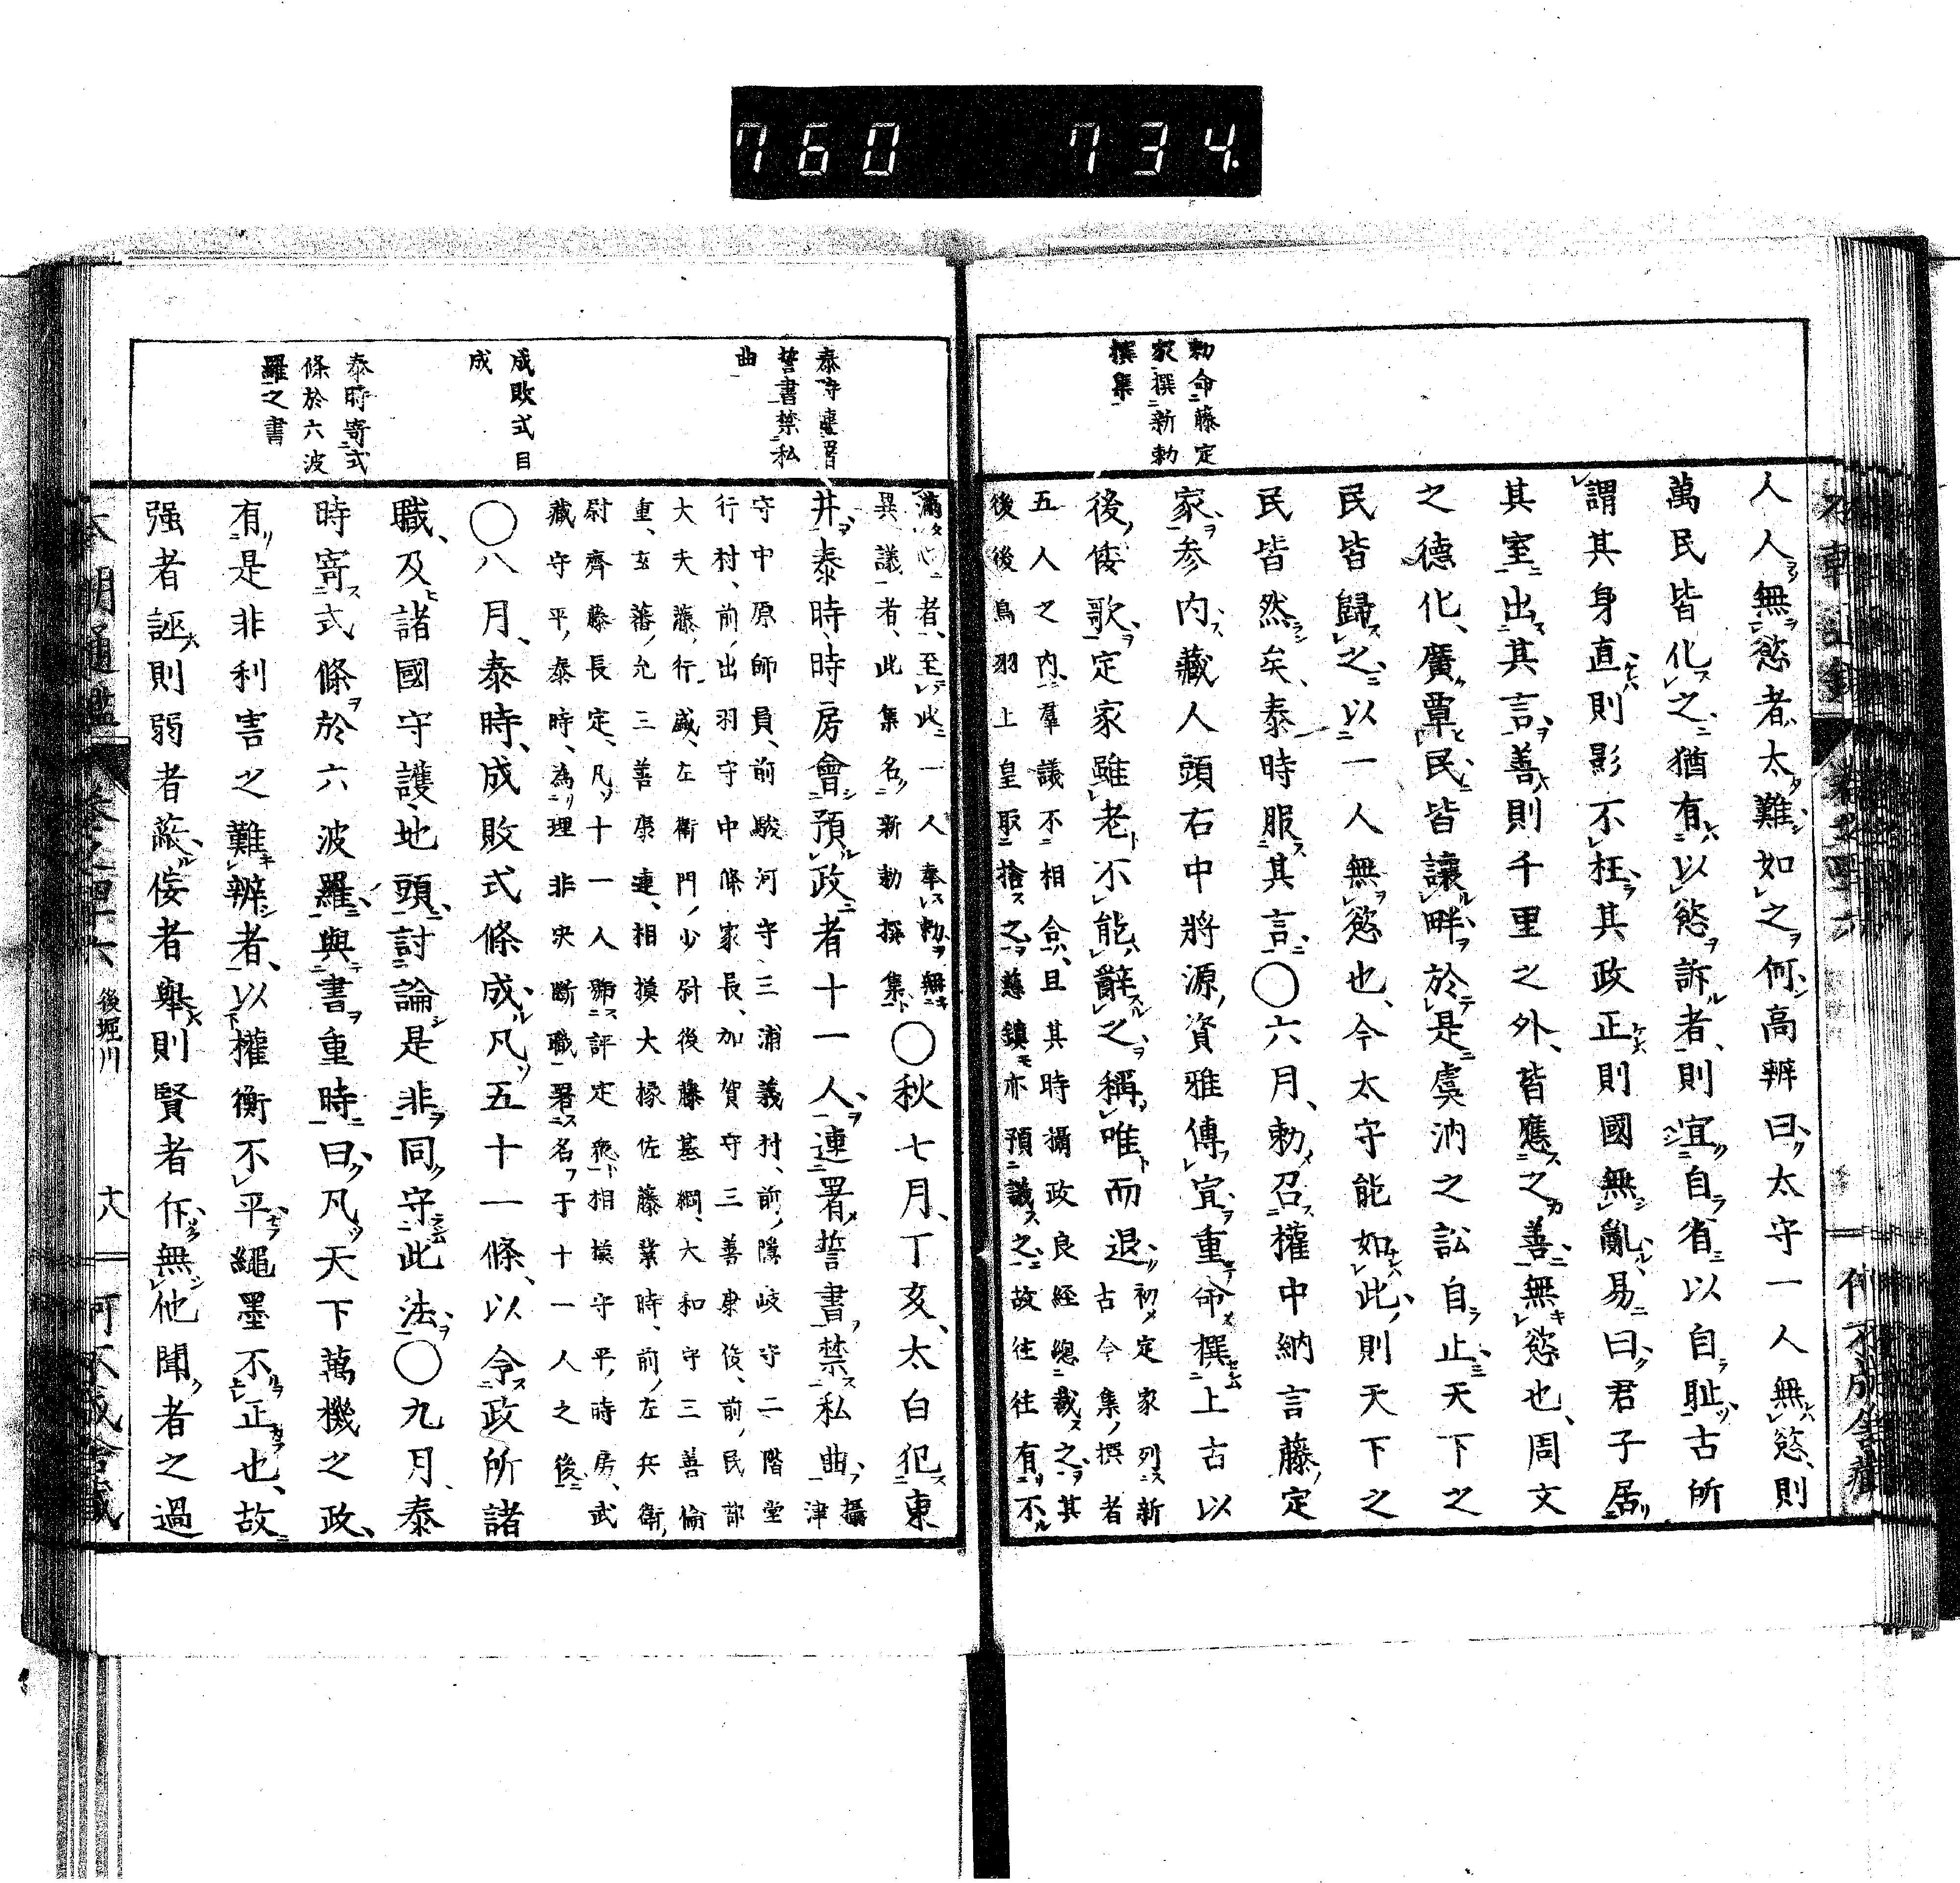 760 734.
勅命藤定
家撰新勅
撰集
人人無慾者太難如之何高辨曰太守一人無慾則
萬民皆化之猶有以慾訴者則宜自省以自耻古所
謂其身直則影不枉其政正則國無亂易曰君子居
其室出其言善則千里之外皆應之善無慾也周文
之德化廣覃民皆讓畔於是虞汭之訟自止天下之
民皆歸之以一人無慾也今太守能如此則天下之
民皆然矣泰時服其言〇六月勅召權中納言藤定
家参内藏人頭右中將源資雅傳宣重命撰上古以
後倭歌定家雖老不能辭之稱唯而退
初定家列新
古今集撰者
五人之内羣議不相合且其時攝政良経總裁之其
後後鳥羽上皇取捨之慈鎮亦預議之故往往有不
滿心者至此一人奉勅無
異議者此集名新勅撰集
〇秋七月丁亥太白犯東
井泰時時房會預政者十一人連署誓書禁私曲
攝
津
守中原師員前駿河守三浦義村前隱岐守二階堂
行村前出羽守中條家長加賀守三善康俊前民部
大夫藤行盛左衞門少尉後藤基綱大和守三善倫
重玄蕃允三善康連相摸大掾佐藤業時前左兵衞
尉齊藤長定凡十一人號評定衆相摸守平時房武
藏守平泰時為理非决斷職署名于十一人之後
〇八月泰時成敗式條成凡五十一條以令政所諸
職及諸國守護地頭討論是非同守此法〇九月泰
時寄式條於六波羅與書重時曰凡天下萬機之政
有是非利害之難辨者以權衡不平繩墨不正也故
强者誣則弱者蔽侫者舉則賢者仆無他聞者之過
泰時連署
誓書禁私
曲
成敗式目
成
泰時寄式
條於六波
羅之書
本朝通鑑
卷之四十六
後堀川
十八